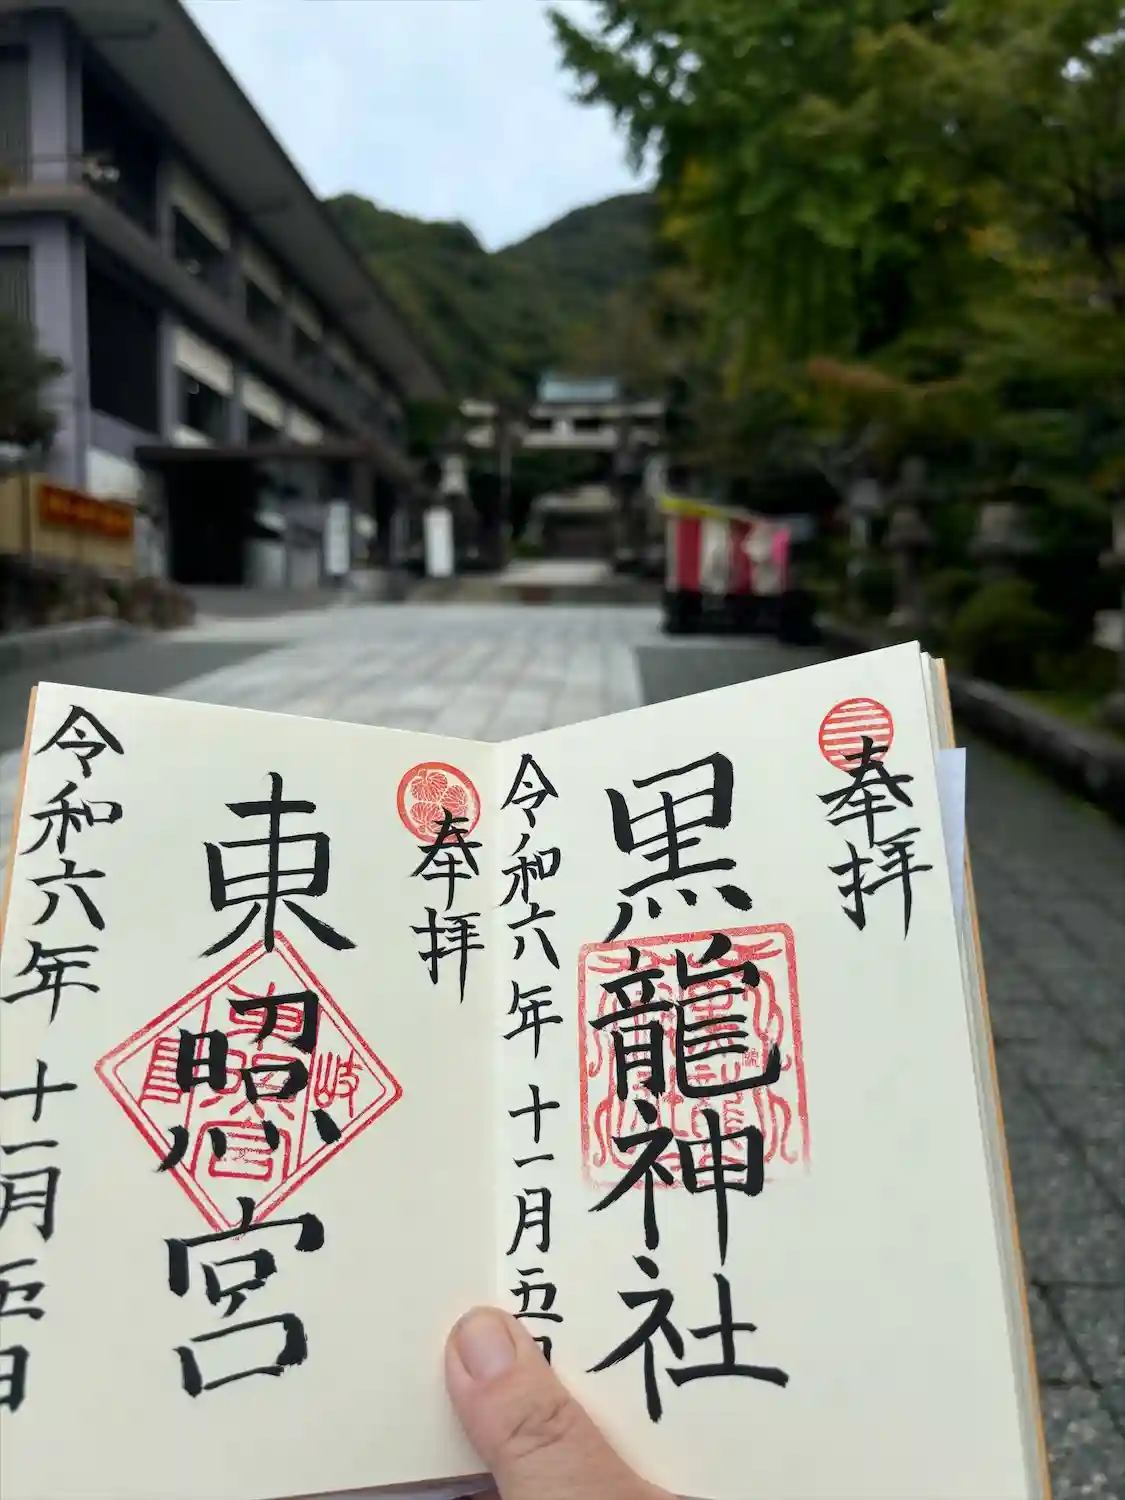 奉拝
黒龍神社
令和六年十一月五日
奉拝
東照宮
岐
令和六年十一月五日